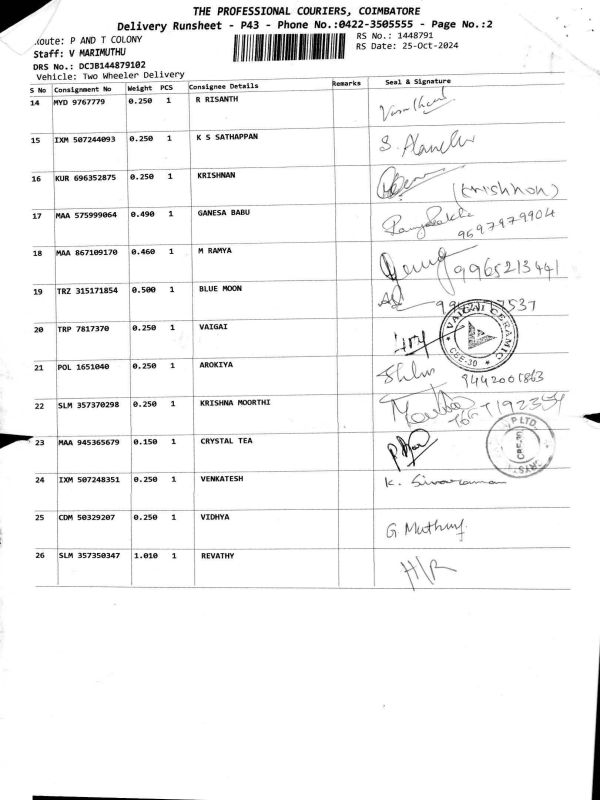 THE PROFESSIONAL COURIERS, COIMBATORE
Delivery Runsheet - P43 - Phone No.:0422-3505555 - Page No.:2
Route: P AND T COLONY
RS No.: 1448791
Staff: V MARIMUTHU
RS Date: 25-Oct-2024
DRS No.: DCJB144879102
Vehicle: Two Wheeler Delivery
S No Consignment No Weight PCS Consignee Details Remarks Seal & Signature
14 MYD 9767779 0.250 1 R RISANTH
15 IXM 507244093 0.250 1 K S SATHAPPAN S.
16 KUR 696352875 0.250 1 KRISHNAN (Krishnon)
17 MAA 575999064 0.490 1 GANESA BABU
9597979904
18 MAA 867109170 0.460 1 M RAMYA 9965213441
19 TRZ 315171854 0.500 1 BLUE MOON
20 TRP 7817370 0.250 1 VAIGAI VAIGAI CERAMIC CBE-30
21 POL 1651040 0.250 1 AROKIYA
9442001863
22 SLM 357370298 0.250 1 KRISHNA MOORTHI
23 MAA 945365679 0.150 1 CRYSTAL TEA P LTD.
24 IXM 507248351 0.250 1 VENKATESH K. Sivaraman
25 CDM 50329207 0.250 1 VIDHYA G Muthu
26 SLM 357350347 1.010 1 REVATHY H/R